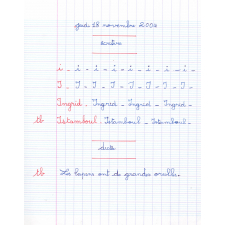 jeudi 18 novembre 2004
écriture
i - i - i - i - i - i - i - i
I - I - I - I - I - I - I - I -
Ingrid - Ingrid - Ingrid - Ingrid -
tb Istamboul - Istamboul - Istamboul -
dictée
tb Les lapins ont de grandes oreilles.